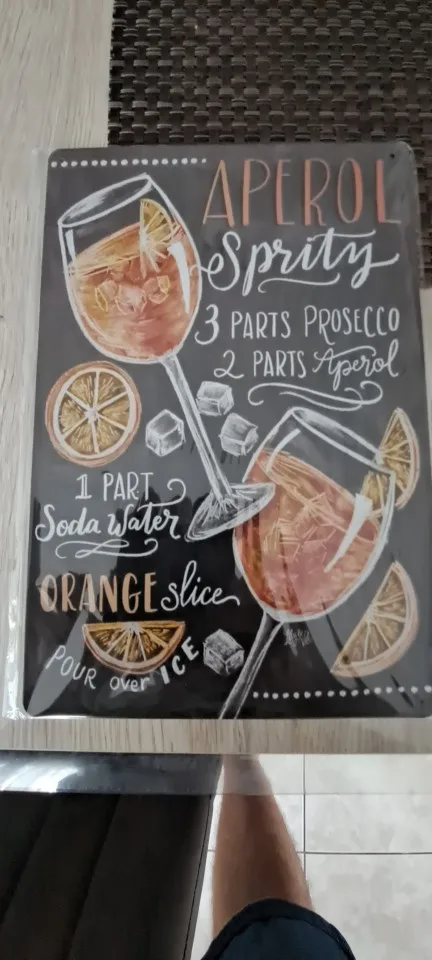 APEROL
Sprity
3 PARTS PROSECCO
2 PARTS Aperol
1 PART
Soda Water
ORANGE slice
POUR over ICE